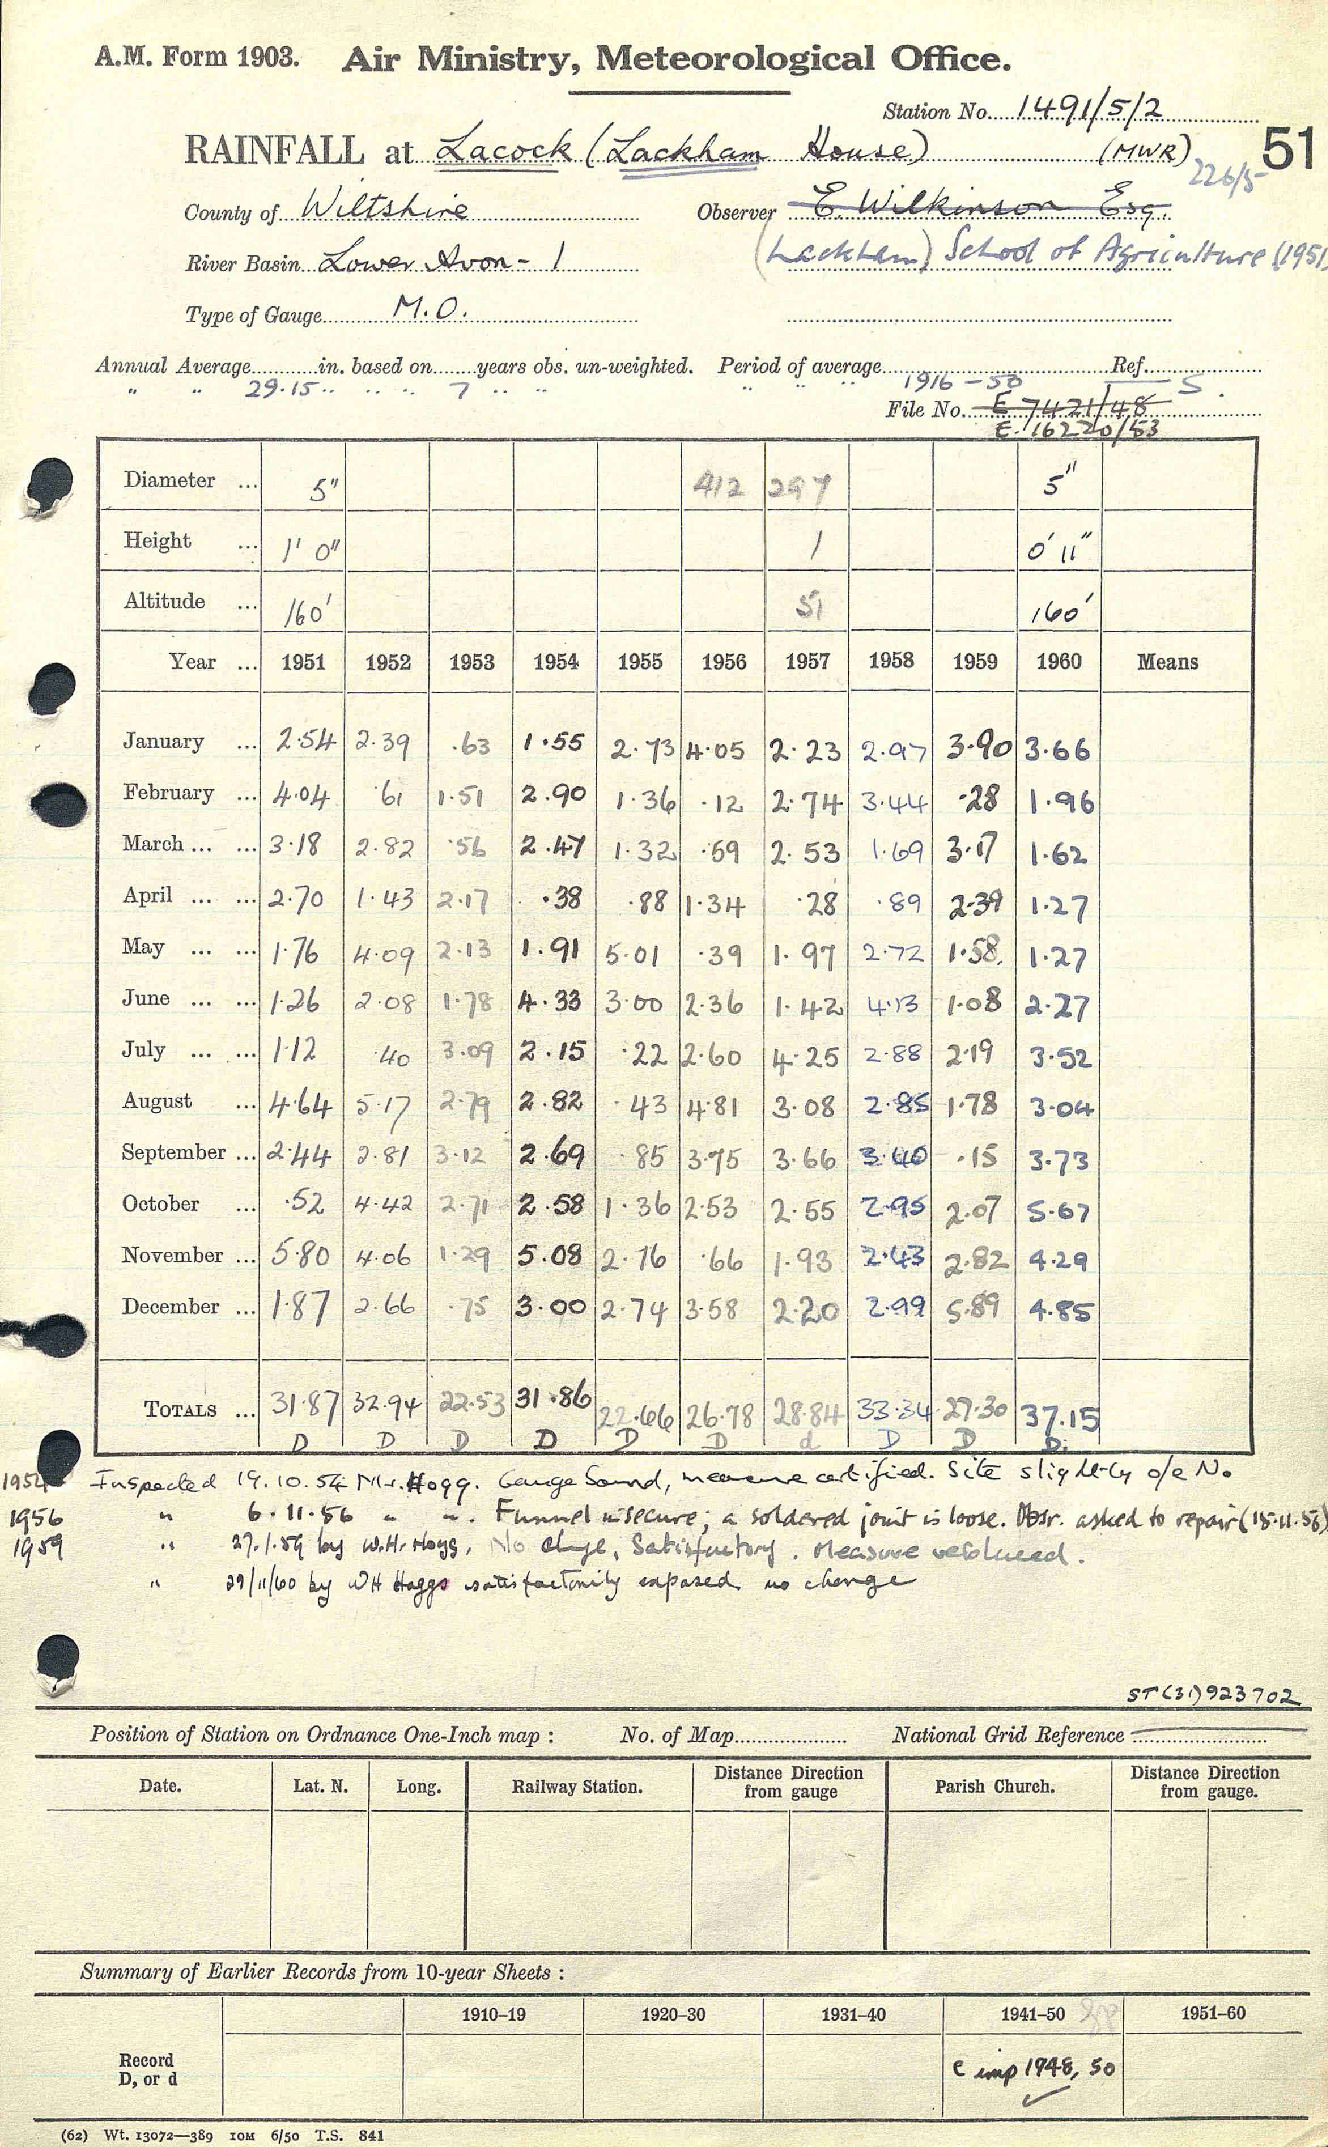 A.M. Form 1903. Air Ministry, Meteorological Office.
Station No. 1491/5/2
RAINFALL at Lacock (Lackham House) (MWR) 51
226/5
County of Wiltshire Observer E. Wilkinson Esq.
River Basin Lower Avon - 1 (Lackham) School of Agriculture (1951)
Type of Gauge M.O.
Annual Average in. based on years obs. un-weighted. Period of average Ref.
" " 29.15 " " " " 7 " " " " " 1916 - 50 S.
File No. E 7421/48
E. 16220/53
Diameter ... 5" 412 297 5"
Height ... 1' 0" 1 0' 11"
Altitude ... 160' 51 160'
Year ... 1951 1952 1953 1954 1955 1956 1957 1958 1959 1960 Means
January ... 2.54 2.39 .63 1.55 2.73 4.05 2.23 2.97 3.90 3.66
February ... 4.04 .61 1.51 2.90 1.36 .12 2.74 3.44 .28 1.96
March ... ... 3.18 2.82 .56 2.47 1.32 .59 2.53 1.69 3.17 1.62
April ... ... 2.70 1.43 2.17 .38 .88 1.34 .28 .89 2.39 1.27
May ... ... 1.76 4.09 2.13 1.91 5.01 .39 1.97 2.72 1.58 1.27
June ... ... 1.26 2.08 1.78 4.33 3.00 2.36 1.42 4.13 1.08 2.27
July ... ... 1.12 .40 3.09 2.15 .22 2.60 4.25 2.88 2.19 3.52
August ... 4.64 5.17 2.79 2.82 .43 4.81 3.08 2.85 1.78 3.04
September ... 2.44 2.81 3.12 2.69 .85 3.75 3.66 3.40 .15 3.73
October ... .52 4.42 2.71 2.58 1.36 2.53 2.55 2.95 2.07 5.67
November ... 5.80 4.06 1.29 5.08 2.76 .66 1.93 2.43 2.82 4.29
December ... 1.87 2.66 .75 3.00 2.74 3.58 2.20 2.99 5.89 4.85
TOTALS ... 31.87 32.94 22.53 31.86 22.66 26.78 28.84 33.34 27.30 37.15
D D D D D D d D D D.
1954 Inspected 19.10.54 Mr. Hogg. Gauge Sound, measure certified. Site slightly o/e No.
1956 " 6.11.56 " ". Funnel insecure; a soldered joint is loose. Obsr. asked to repair (15.11.56)
1959 " 27.1.59 by W.H. Hogg. No change, Satisfactory. Measure replaced.
" 29/11/60 by W H Hogg satisfactorily exposed no change
ST (31) 923702
Position of Station on Ordnance One-Inch map : No. of Map National Grid Reference
Date. Lat. N. Long. Railway Station. Distance Direction from gauge Parish Church. Distance Direction from gauge.
Summary of Earlier Records from 10-year Sheets :
1910–19 1920–30 1931–40 1941–50 1951–60
Record D, or d e imp 1948, 50 ✓
(62) Wt. 13072—389 10M 6/50 T.S. 841